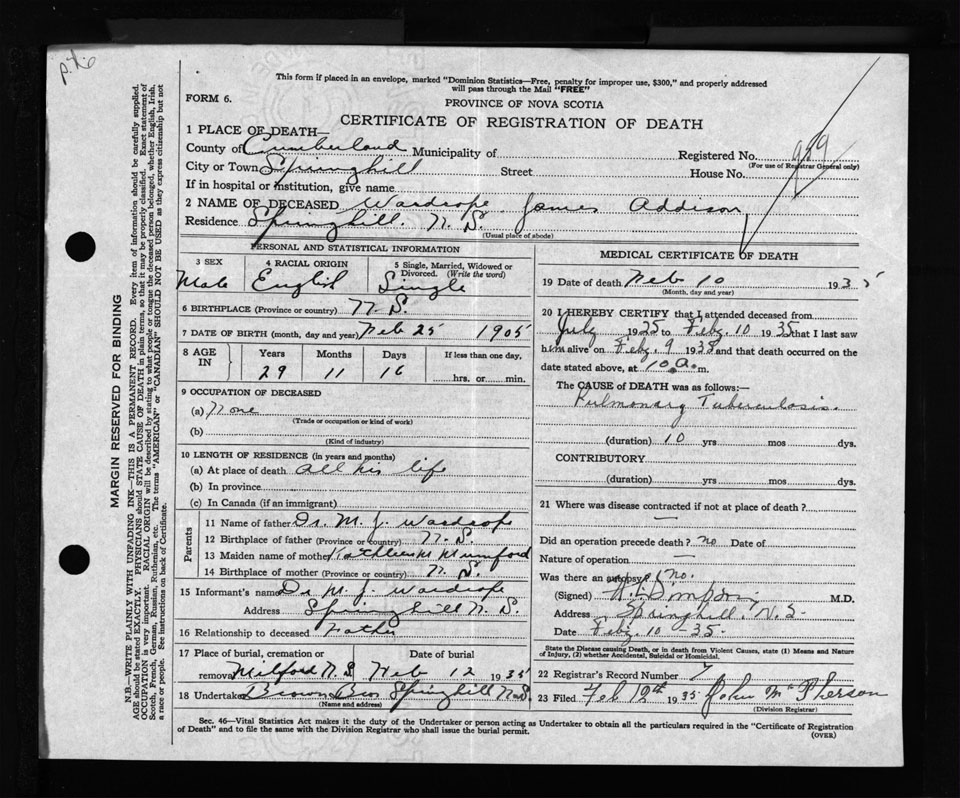 p. 76
This form if placed in an envelope, marked "Dominion Statistics—Free, penalty for improper use, $300," and properly addressed
will pass through the Mail "FREE"
FORM 6.
PROVINCE OF NOVA SCOTIA
CERTIFICATE OF REGISTRATION OF DEATH
1 PLACE OF DEATH—
County of Cumberland Municipality of
Registered No. 989
(For use of Registrar General only)
City or Town Springhill Street House No.
If in hospital or institution, give name
2 NAME OF DECEASED Wardrope James Addison
Residence Springhill. N. S.
(Usual place of abode)
PERSONAL AND STATISTICAL INFORMATION
3 SEX
Male
4 RACIAL ORIGIN
English
5 Single, Married, Widowed or
Divorced. (Write the word)
Single
6 BIRTHPLACE (Province or country) N. S.
7 DATE OF BIRTH (month, day and year) Feb 25 1905
8 AGE
IN
Years Months Days If less than one day,
29 11 16 hrs. or min.
9 OCCUPATION OF DECEASED
(a) None
(Trade or occupation or kind of work)
(b)
(Kind of industry)
10 LENGTH OF RESIDENCE (in years and months)
(a) At place of death all his life
(b) In province
(c) In Canada (if an immigrant)
Parents
11 Name of father Dr. M. J. Wardrope
12 Birthplace of father (Province or country) N. S.
13 Maiden name of mother Kathleen M Mumford
14 Birthplace of mother (Province or country) N. S.
15 Informant's name Dr M. J. Wardrope
Address Springhill N. S.
16 Relationship to deceased Father
17 Place of burial, cremation or Date of burial
removal Milford N.S Feb 12 1935
18 Undertaker Brown Bros Springhill N.S.
(Name and address)
MEDICAL CERTIFICATE OF DEATH
19 Date of death Feb 10 1935
(Month, day and year)
20 I HEREBY CERTIFY that I attended deceased from
July 1925 to Feby. 10 1935 that I last saw
him alive on Feby. 9 1935 and that death occurred on the
date stated above, at 10 a. m.
The CAUSE OF DEATH was as follows:—
Pulmonary Tuberculosis.
(duration) 10 yrs mos dys.
CONTRIBUTORY
(duration) yrs mos dys.
21 Where was disease contracted if not at place of death?
—
Did an operation precede death? no Date of
Nature of operation —
Was there an autopsy? no.
(Signed) M.D.
Address Springhill, N.S-
Date Feby. 10 -35-
State the Disease causing Death, or in death from Violent Causes, state (1) Means and Nature
of Injury, (2) whether Accidental, Suicidal or Homicidal.
22 Registrar's Record No. 7
23 Filed Feb 12th 1935 John McPherson
(Division Registrar)
Sec. 46—Vital Statistics Act makes it the duty of the Undertaker or person acting as Undertaker to obtain all the particulars required in the "Certificate of Registration
of Death" and to file the same with the Division Registrar who shall issue the burial permit.
(OVER)
MARGIN RESERVED FOR BINDING
N.B.—WRITE PLAINLY WITH UNFADING INK—THIS IS A PERMANENT RECORD. Every item of information should be carefully supplied.
AGE should be stated EXACTLY. PHYSICIANS should STATE CAUSE OF DEATH in plain terms, so that it may be properly classified. Exact statement of
OCCUPATION is very important. RACIAL ORIGIN will be described by stating to what people or tongue the deceased person belonged, whether English, Irish,
Scotch, French, German, Russian, Ruthenian, etc. The terms "AMERICAN" or "CANADIAN" SHOULD NOT BE USED as they express citizenship but not
a race or people. See instructions on back of Certificate.